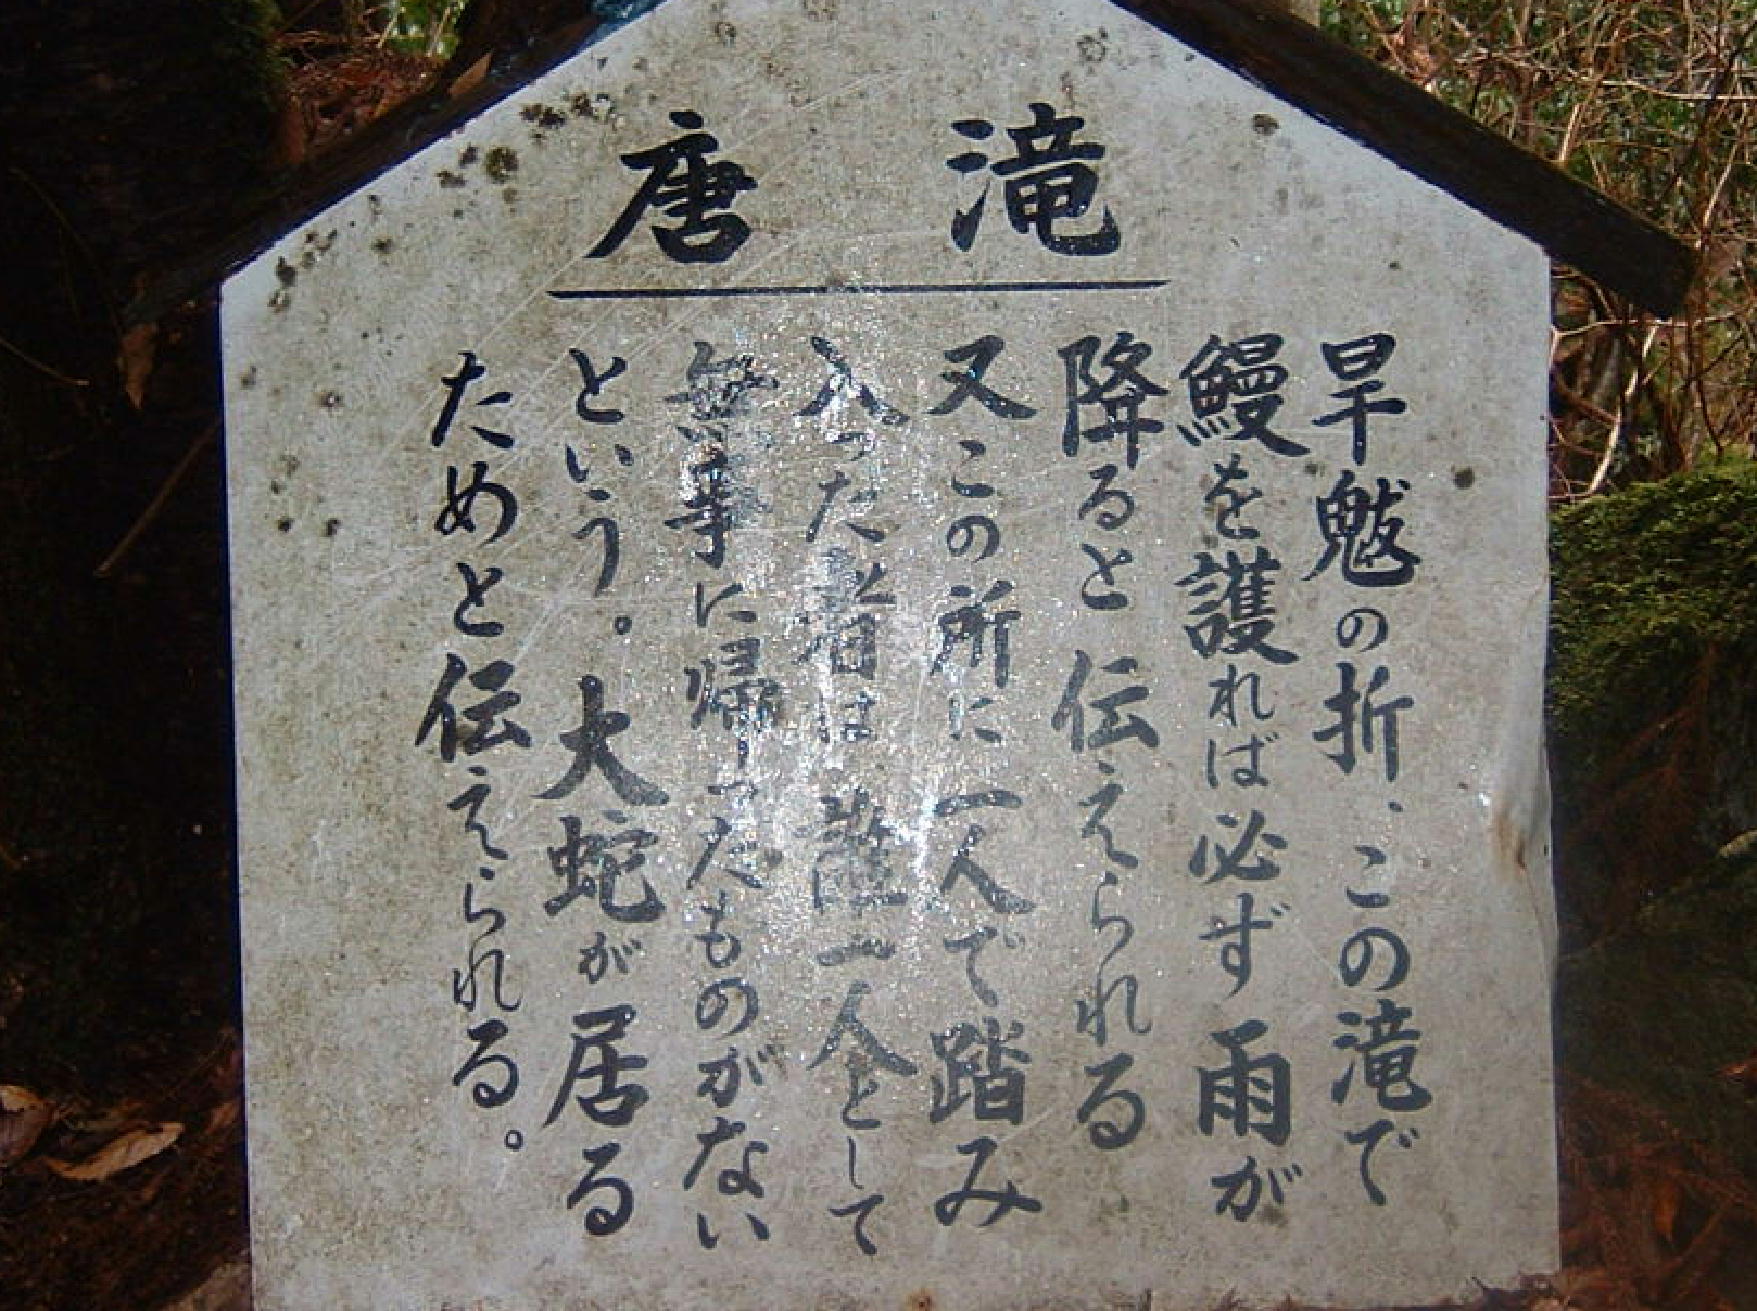 唐滝
旱魃の折、この滝で
鰻を護れば必ず雨が
降ると伝えられる
又この所に一人で踏み
入った者は誰一人として
無事に帰ったものがない
という。大蛇が居る
ためと伝えられる。